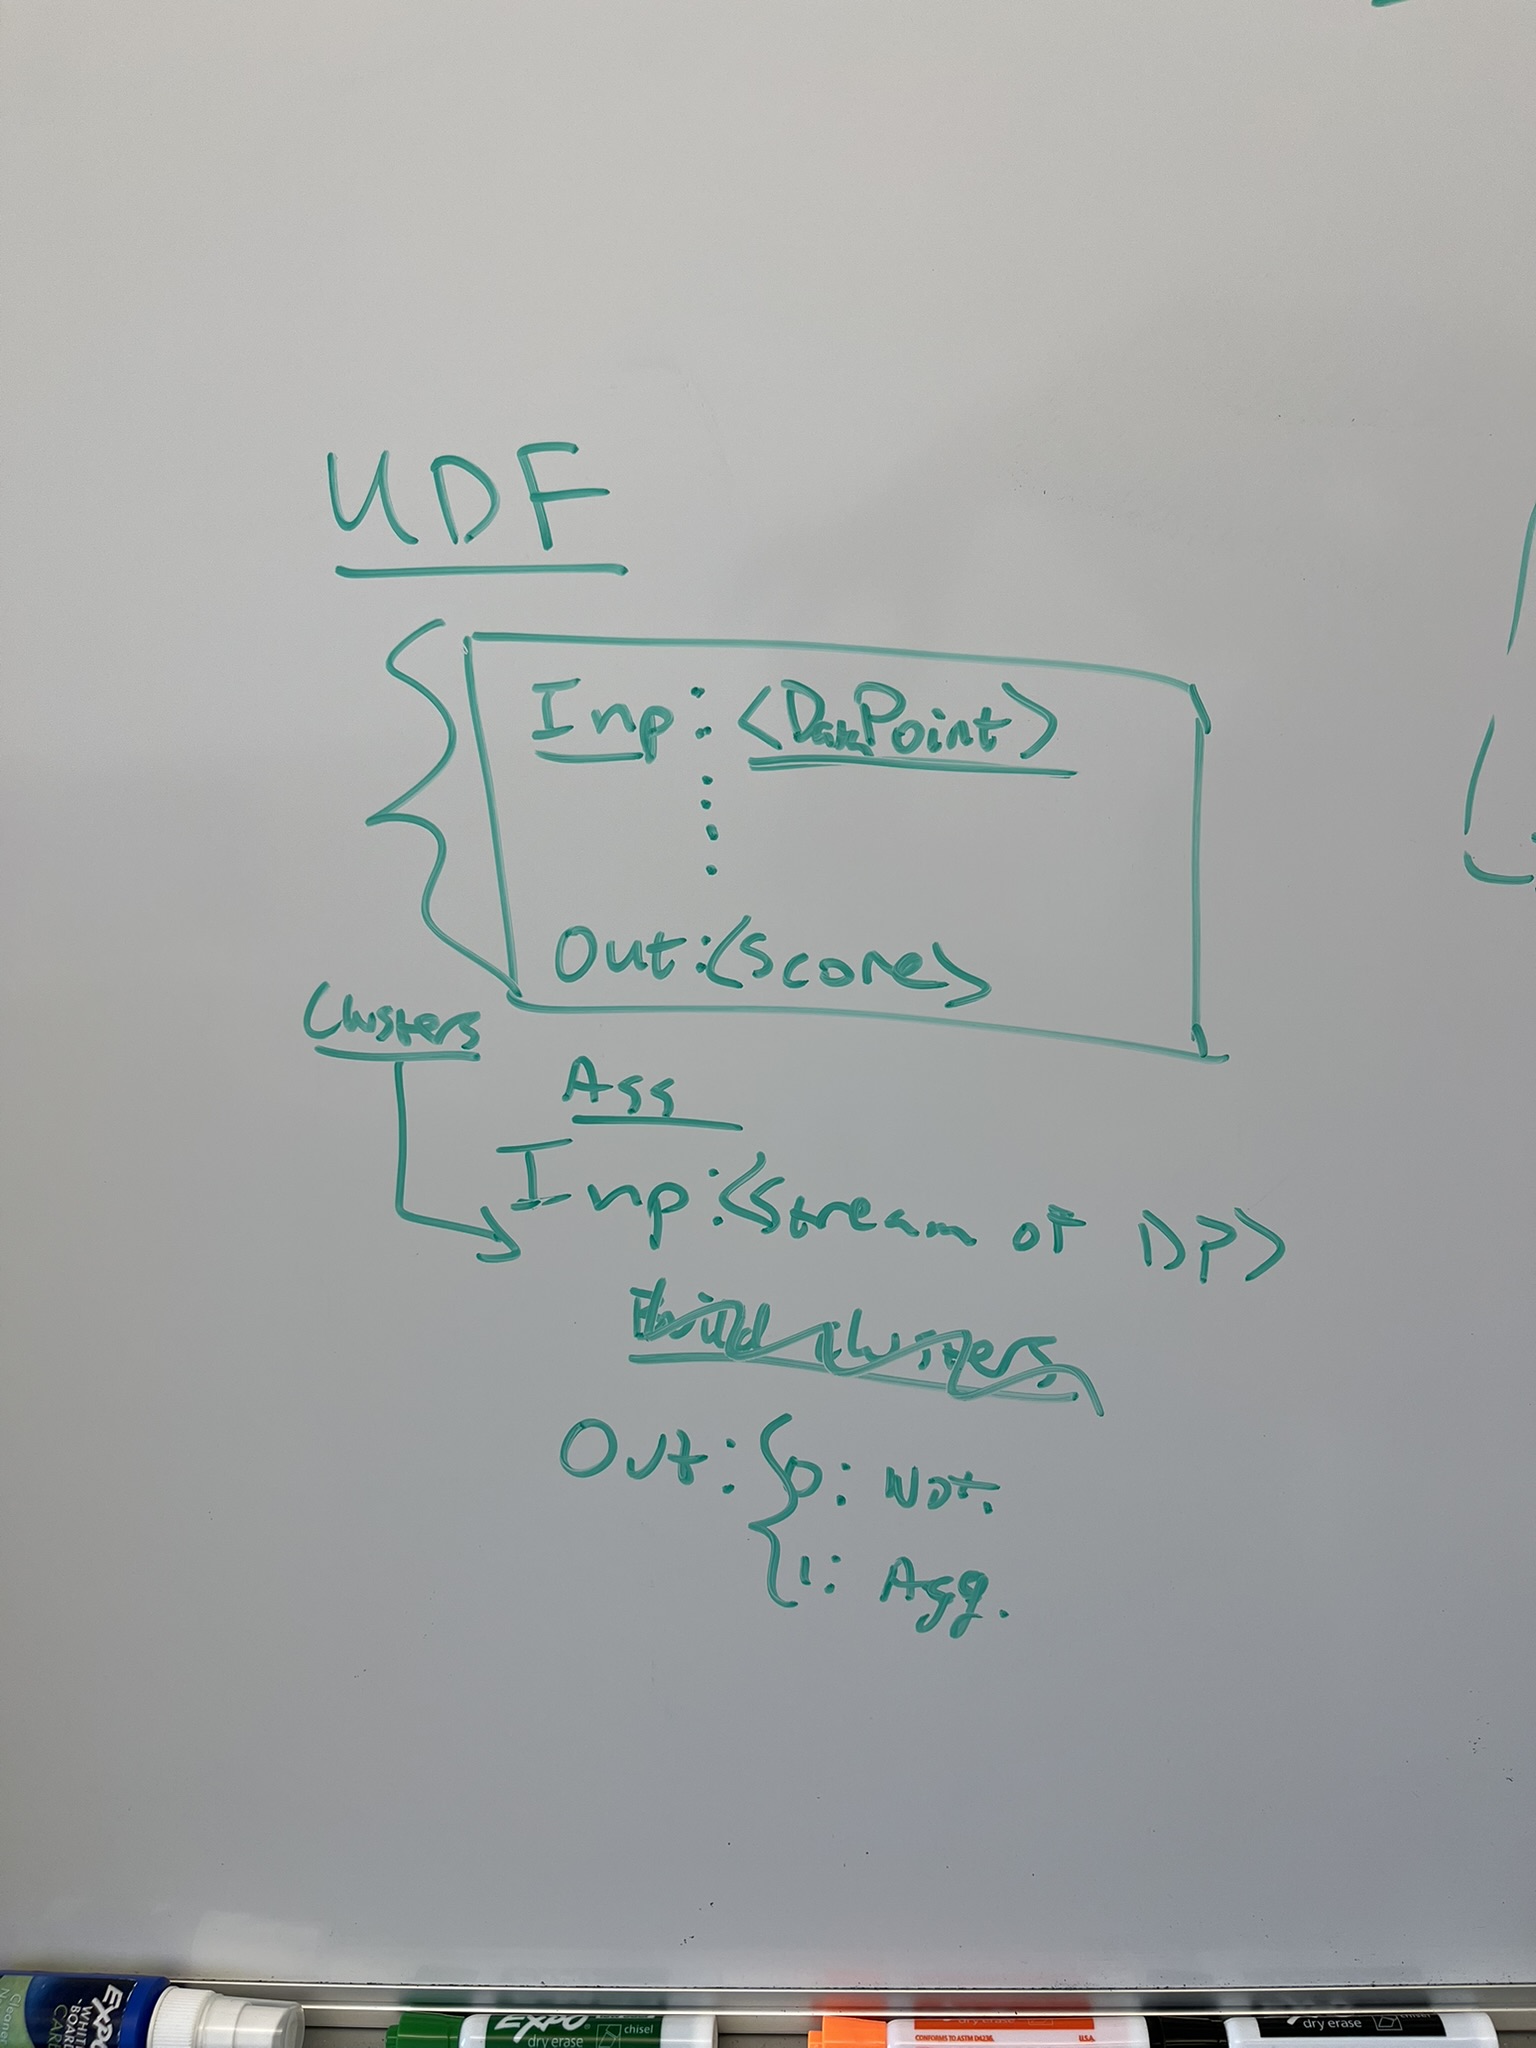 UDF
Inp: <DataPoint>
Out: <Score>
Clusters
Agg
Inp: <Stream of DP>
Build clusters
Out: { 0: Not.
1: Agg.
EXPO
WHITE
BOARD
CARE
Cleaner
EXPO
dry erase
chisel
CONFORMS TO ASTM D4236
U.S.A.
dry erase